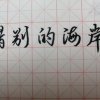 别的海岸